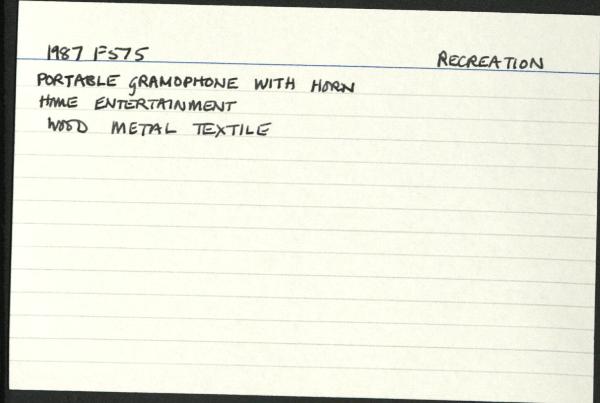 1987 F575 RECREATION
PORTABLE GRAMOPHONE WITH HORN
HOME ENTERTAINMENT
WOOD METAL TEXTILE